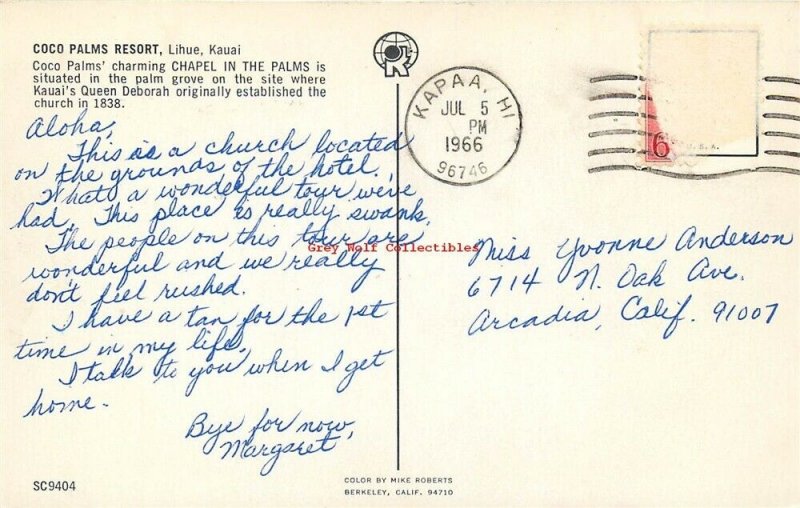 COCO PALMS RESORT, Lihue, Kauai
Coco Palms' charming CHAPEL IN THE PALMS is
situated in the palm grove on the site where
Kauai's Queen Deborah originally established the
church in 1838.
Aloha,
This is a church located
on the grounds of the hotel.
What a wonderful tour we've
had. This place is really swank.
The people on this tour are
wonderful and we really
don't feel rushed.
I have a tan for the 1st
time in my life.
I talk to you when I get
home.
Bye for now,
Margaret
SC9404
KAPAA, HI
JUL 5
PM
1966
96746
6
U.S.A.
Grey Wolf Collectibles
Miss Yvonne Anderson
6714 N. Oak Ave.
Arcadia, Calif. 91007
COLOR BY MIKE ROBERTS
BERKELEY, CALIF. 94710